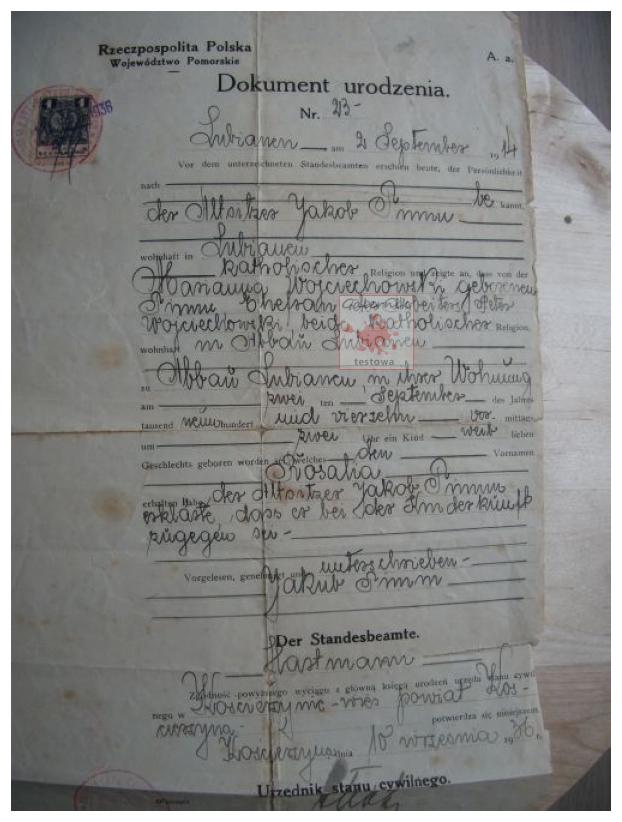 Rzeczpospolita Polska
Województwo Pomorskie
A. a.
Dokument urodzenia.
Nr. 23-
1 1936
Lubianen am 2 September 1914
Vor dem unterzeichneten Standesbeamten erschien heute, der Persönlichkeit
nach be kannt,
der Altsitzer Jakob
wohnhaft in Lubianen
katholischer Religion und zeigte an, dass von der
Marianna Wojciechowski geborenen
Ehefrau Peter
Wojciechowski, beide katholischer Religion,
wohnhaft in Abbau Lubianen
testowa
zu Abbau Lubianen in ihrer Wohnung
am zwei ten September des Jahres
tausend neunhundert und vierzehn vor mittags
um zwei Uhr ein Kind weib lichen
Geschlechts geboren worden sei, welches den Vornamen
Rosalia
erhalten habe, der Altsitzer Jakob
erklärte, dass er bei der Niederkunft
zugegen sei-
Vorgelesen, genehmigt und unterschrieben-
Jakub
Der Standesbeamte.
Hartmann
Zgodność powyższego wyciągu z główną księgą urodzeń urzędu stanu cywil
nego w Kościerzyna-wieś powiat Koś-
cierzyna- potwierdza się niniejszem
Kościerzyna dnia 10 września 1936 r.
Urzędnik stanu cywilnego.